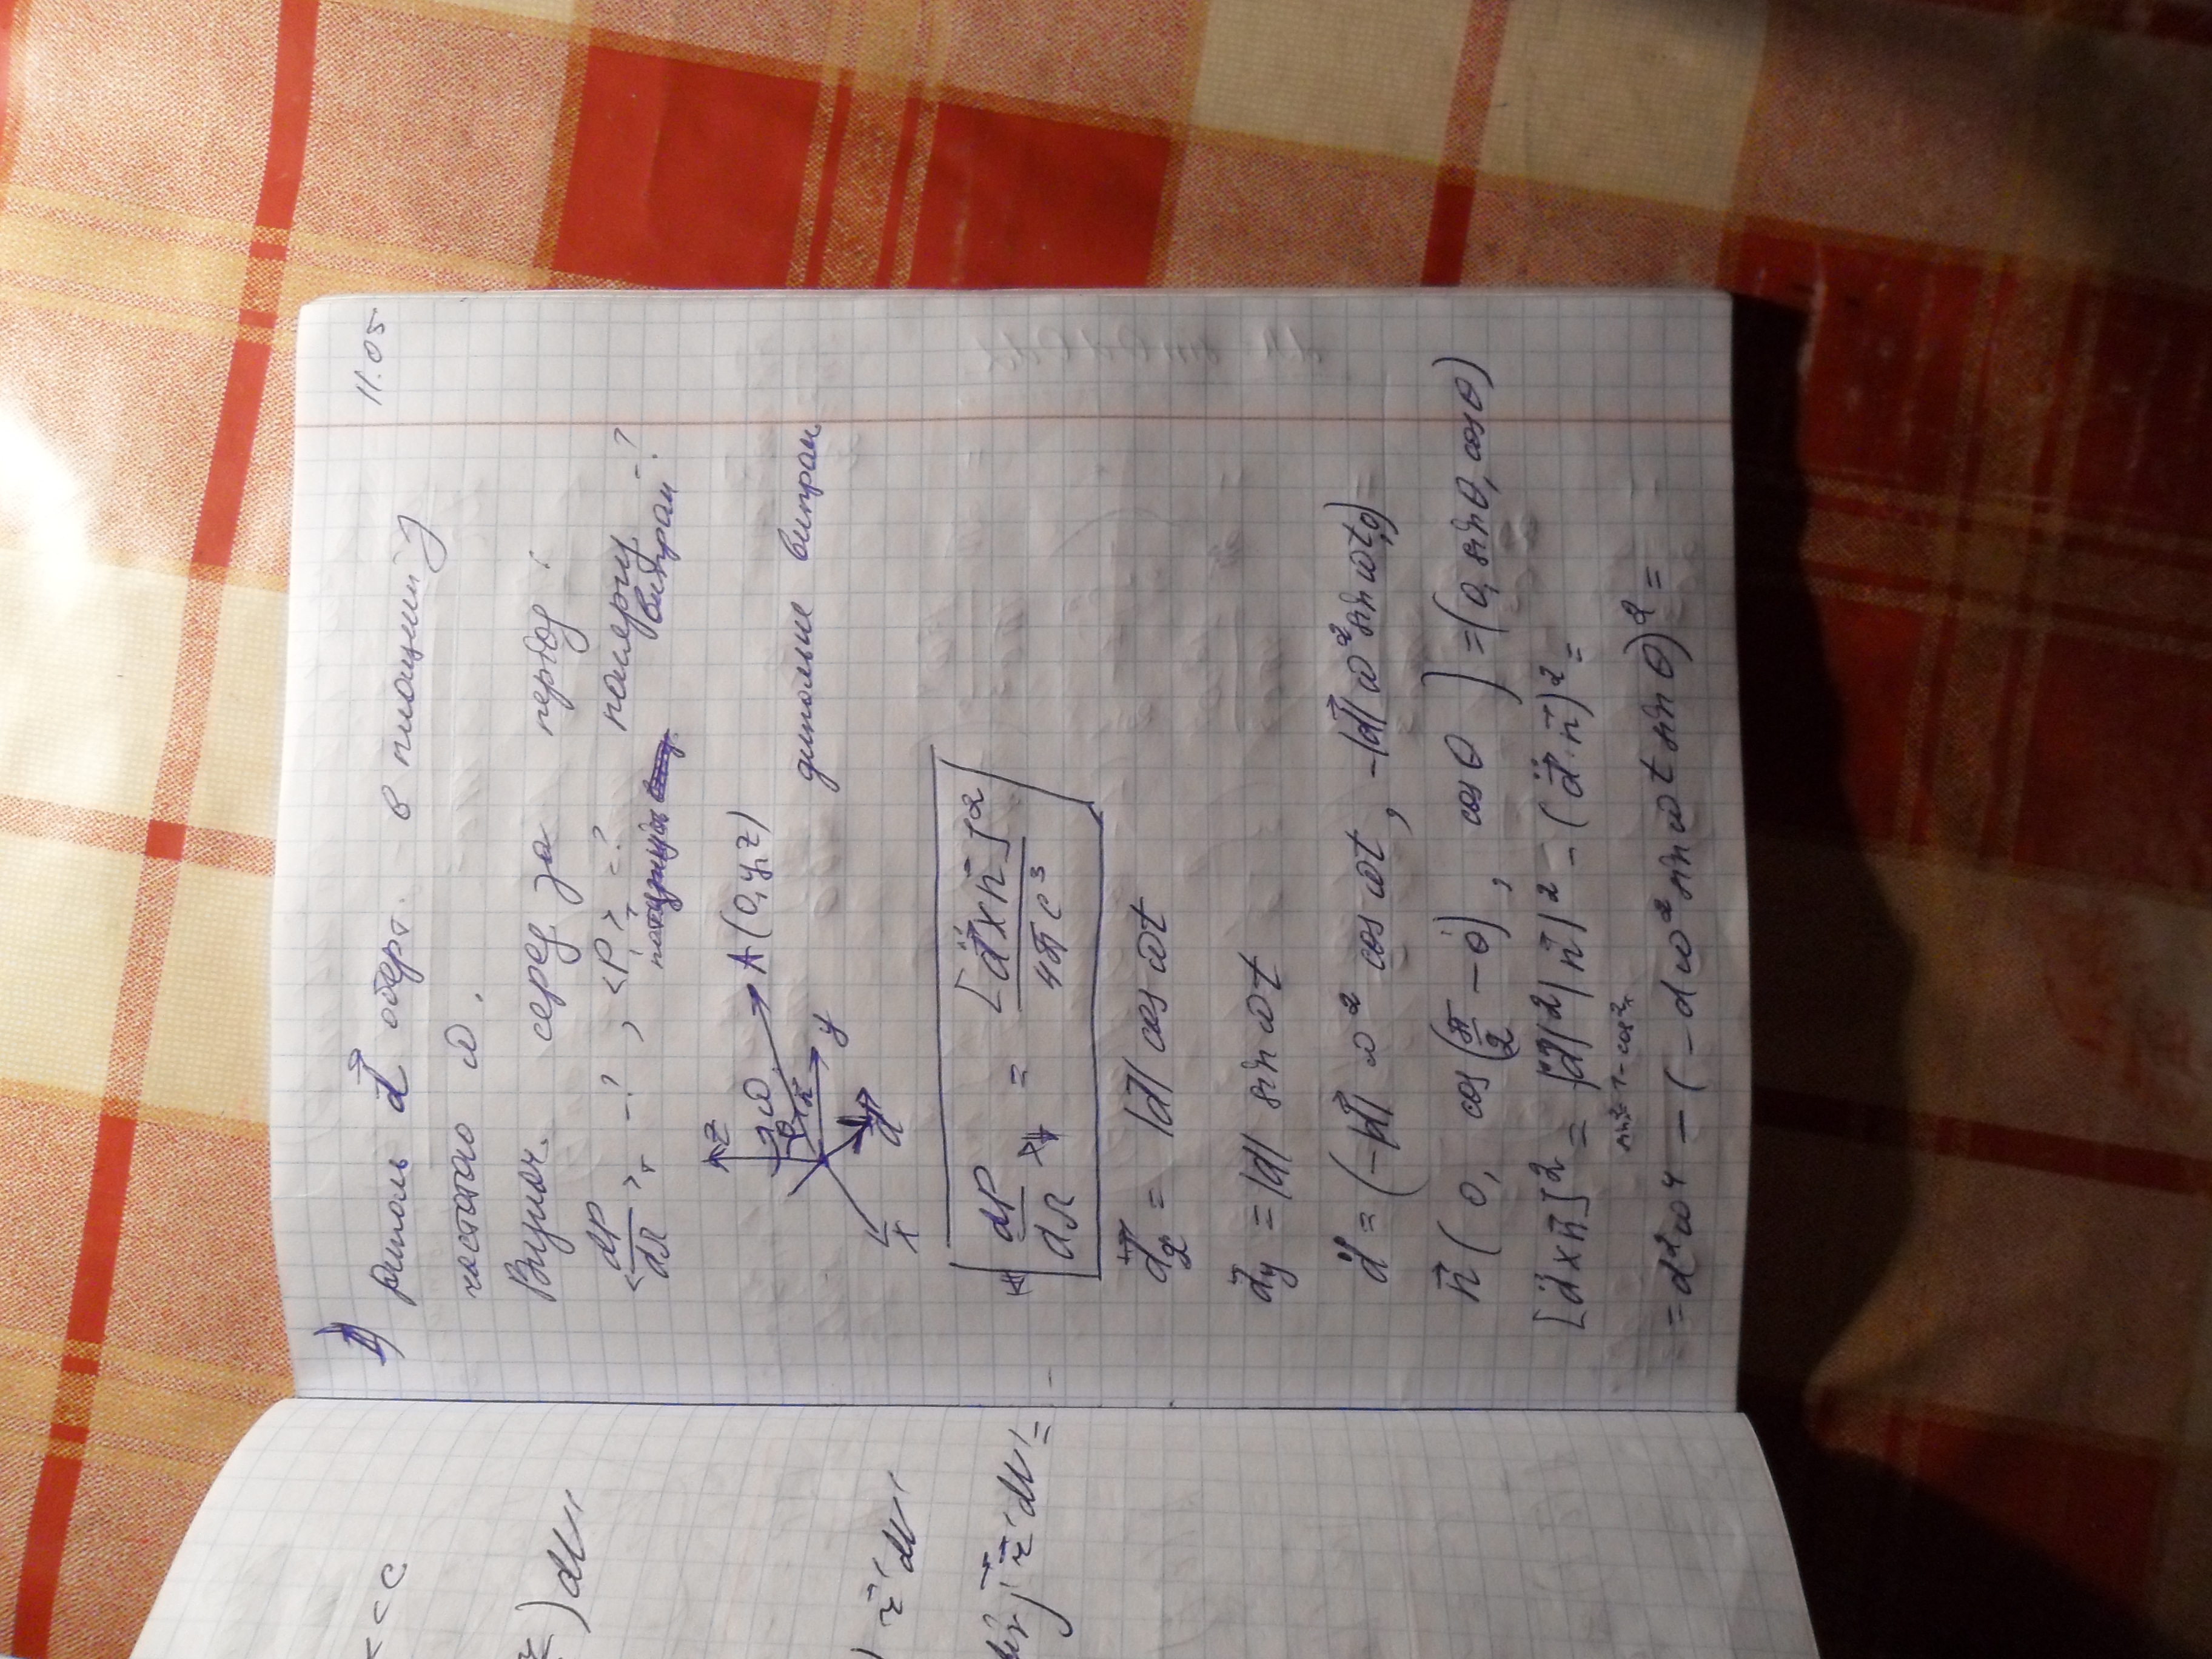 11.05
1) Диполь d⃗ оберт. в площині
частотою ω.
Визнач. серед за період:
<dP/dΩ>_T -?, <P>_T =? поляриз. -?
випром
z
ω
θ
n⃗
A (0, y, z)
y
x
d⃗
дипольне випром
dP/dΩ = [d̈⃗ × n⃗]² / 4πc³
d⃗x = |d⃗| cos ωt
d⃗y = |d⃗| sin ωt
d̈⃗ = (-|d⃗| ω² cos ωt, -|d⃗| ω² sin ωt, 0)
n⃗ (0, cos(π/2 - θ), cos θ) = (0, sin θ, cos θ)
[d̈⃗ × n⃗]² = |d̈⃗|² |n⃗|² - (d̈⃗ · n⃗)² =
sin² = 1 - cos²
= d²ω⁴ - (-dω² sin ωt sin θ)² =
<< c
) dV'
r⃗' dV'
j⃗ r⃗' dV' =